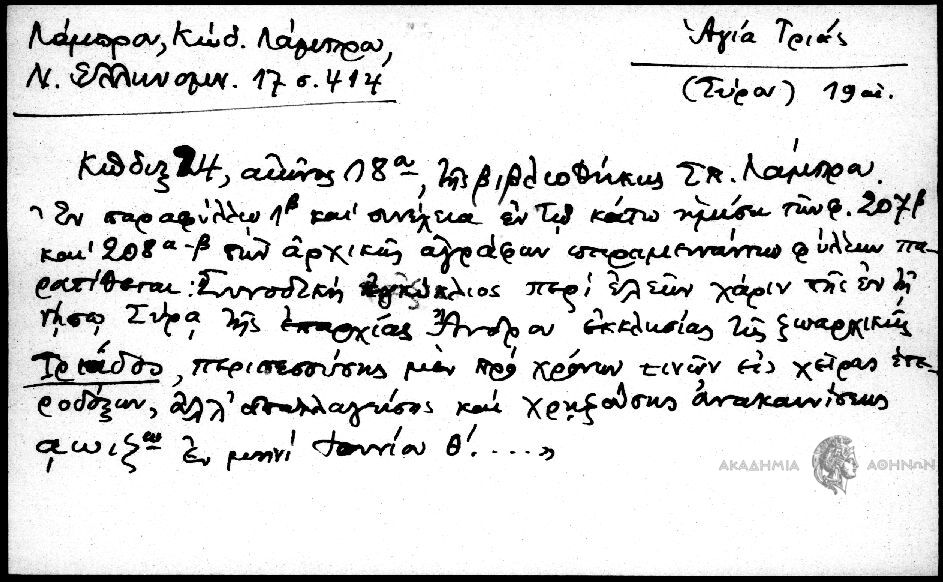 Λάμπρου, Κώδ. Λάμπρου,
Ν. Ελληνομν. 17 σ. 414
Ἁγία Τριάς
(Σύρου) 19 αἰ.
Κῶδιξ 24, αἰῶνος 18ου, τῆς βιβλιοθήκης Σπ. Λάμπρου.
"Ἐν παραφύλλῳ 1β καὶ συνέχεια ἐν τῷ κάτω ἡμίσει τῶν φ. 207β
καὶ 208α-β τῶν ἀρχικῶς ἀγράφων παραμεινάντων φύλλων πα-
ρατίθεται: Συνοδικὴ ἐγκύκλιος περὶ ἐλεῶν χάριν τῆς ἐν τῇ
νήσῳ Σύρᾳ τῆς ἐπαρχίας Ἄνδρου ἐκκλησίας τῆς ζωαρχικῆς
Τριάδος, περιπεσούσης μὲν πρὸ χρόνων τινῶν εἰς χεῖρας ἑτε-
ροδόξων, ἀλλ' ἀπαλλαγείσης καὶ χρηζούσης ἀνακαινίσεως
αωιζῳ ἐν μηνὶ Ἰουνίου θ'. ...."
ΑΚΑΔΗΜΙΑ ΑΘΗΝΩΝ